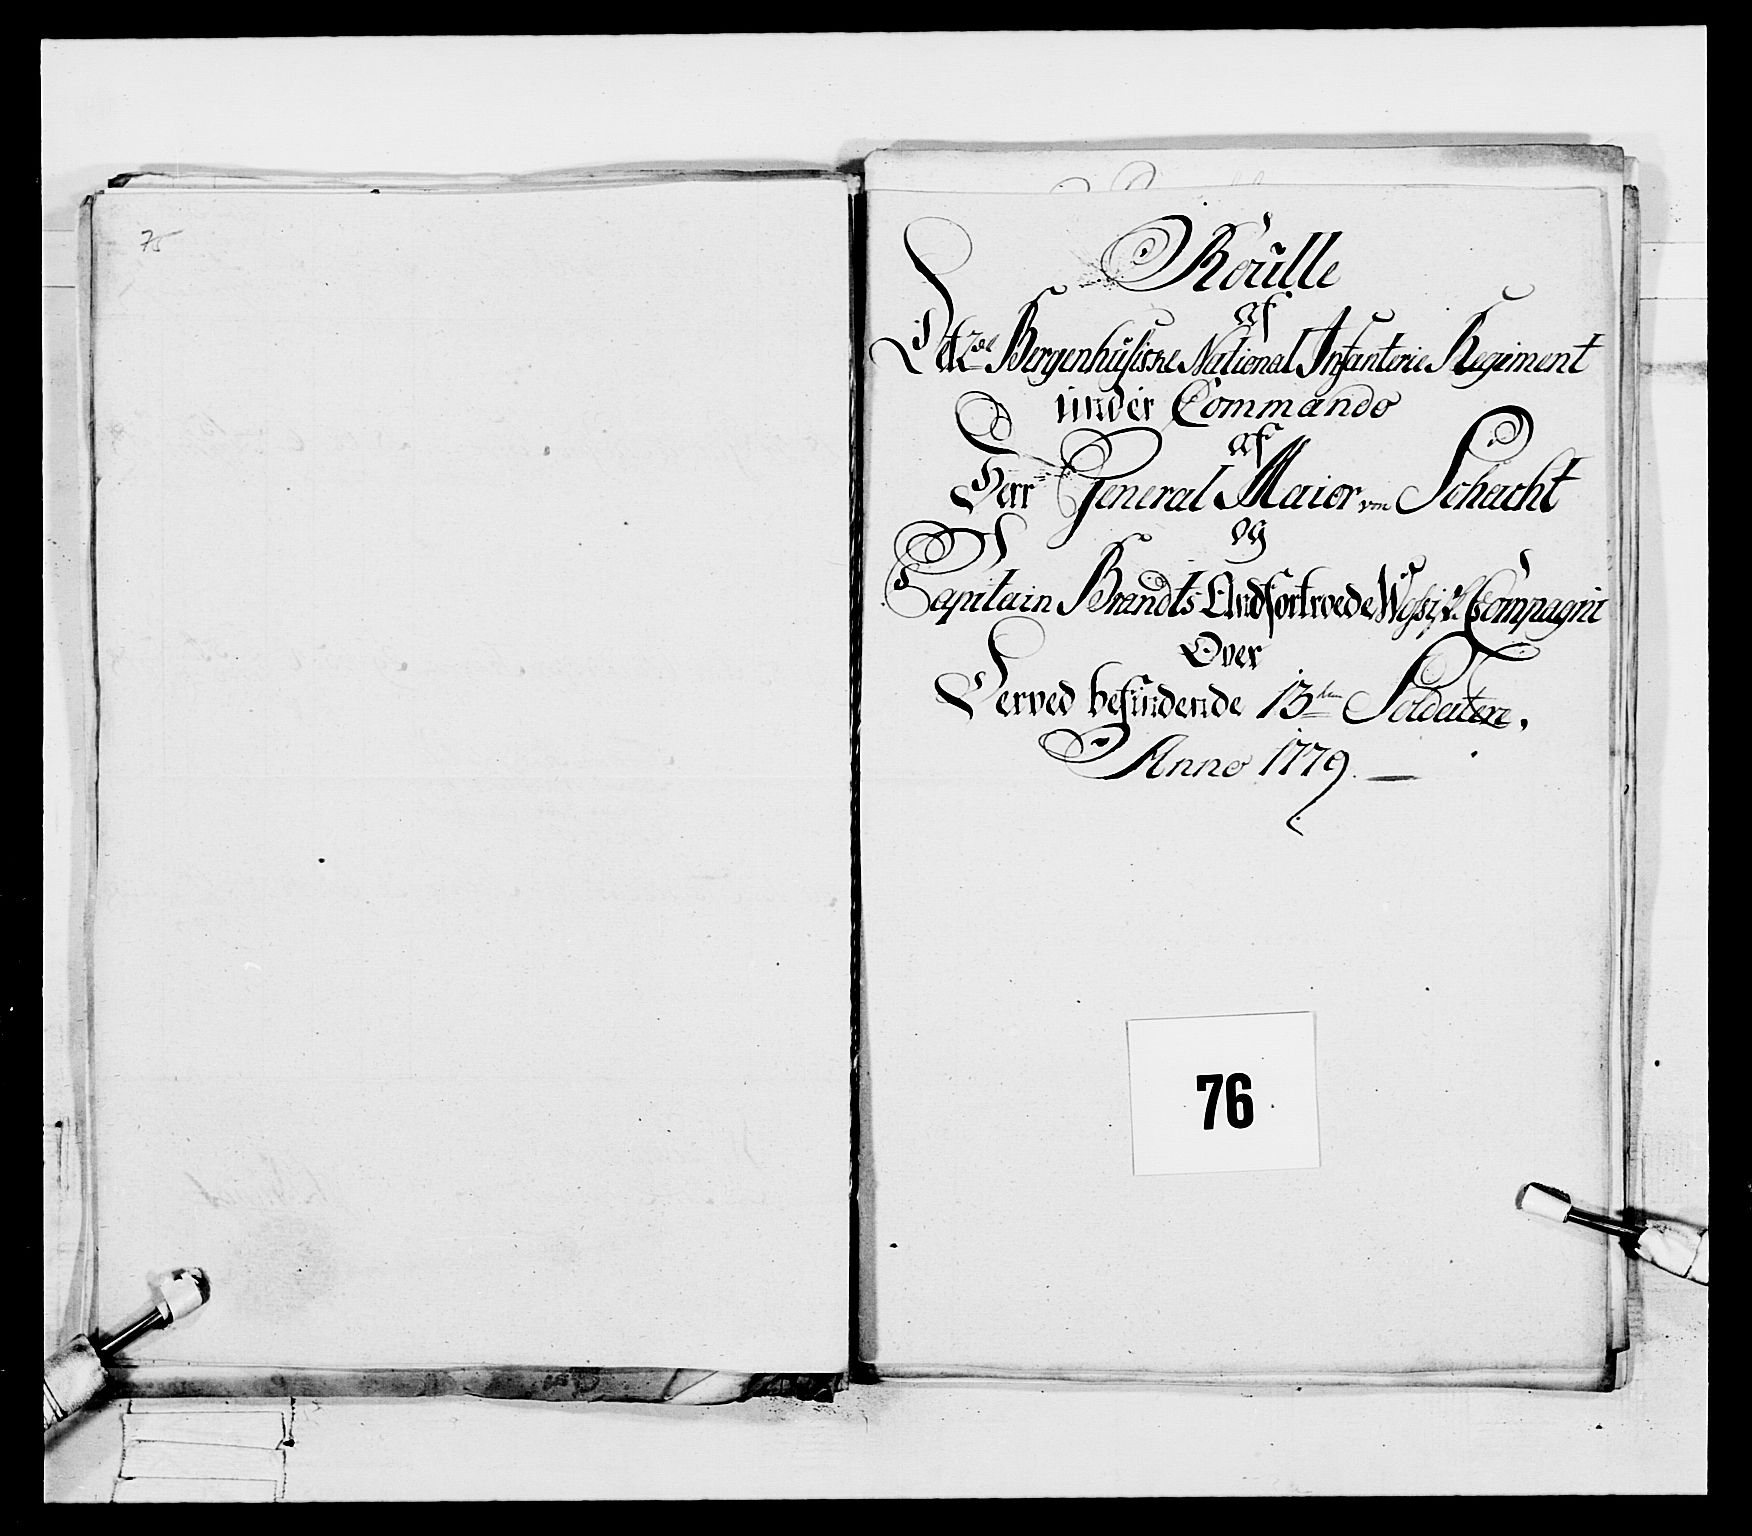 75
Roulle
af
Det 2de Bergenhusisne National Infanterie Regiment
under Commando
af
Herr General Maior von Schacht
og
Capitain Brandts Andfortroede Compagni
Over
Derved befindende 13den Soldater.
Anno 1779. —
76